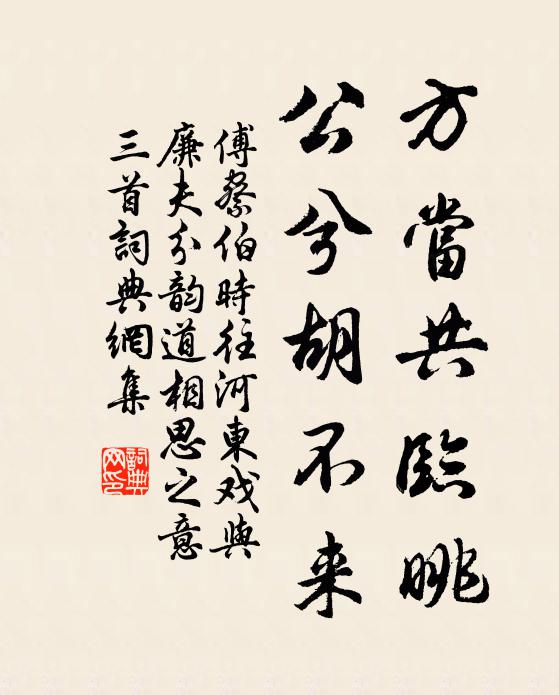 方當共臨眺
公兮胡不来
傅祭伯時往河東戏與
廉夫分韵道相思之意
三首詞典網集
詞典网印